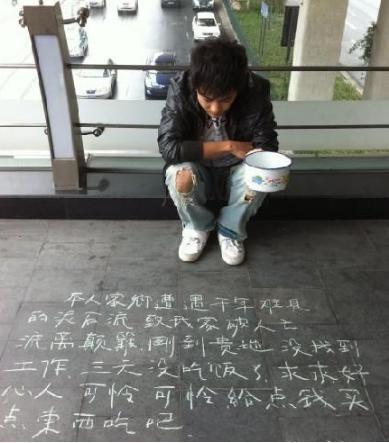 本人家鄉遭遇千年難見
的泥石流 致我家破人亡
流离颠覆 倒到贵地 没找到
工作,三天没吃饭了,求求好
心人 可怜可怜給点钱买
点東西吃吧.